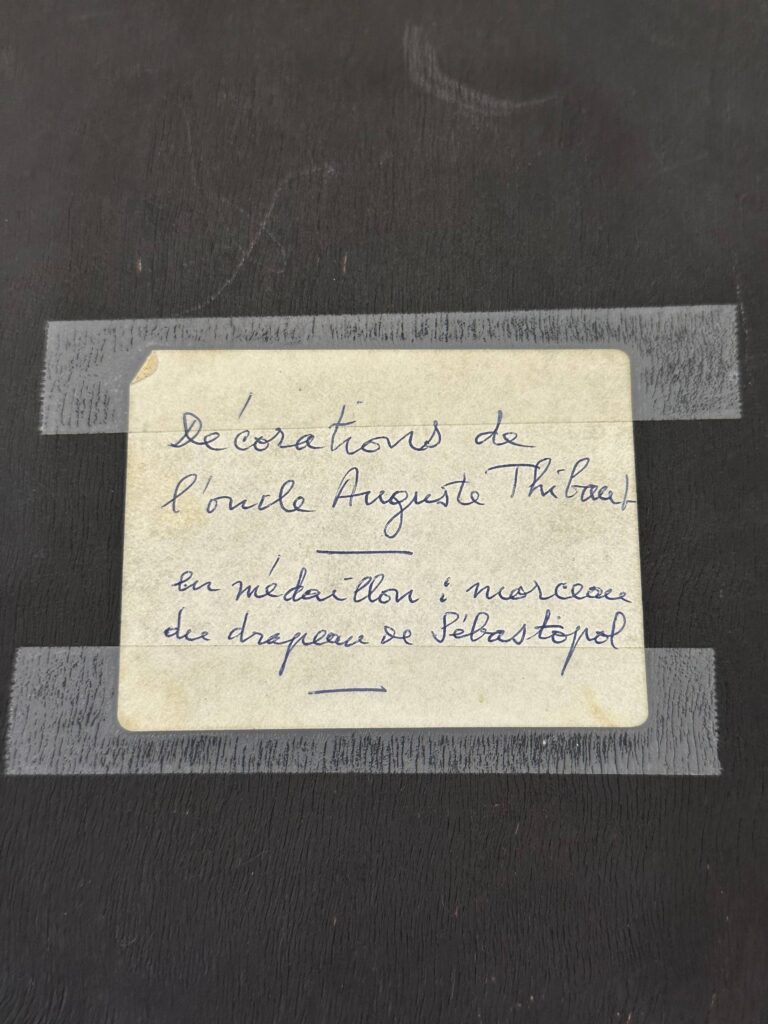 Décorations de
l'oncle Auguste Thibaut
en médaillon : morceau
du drapeau de Sébastopol